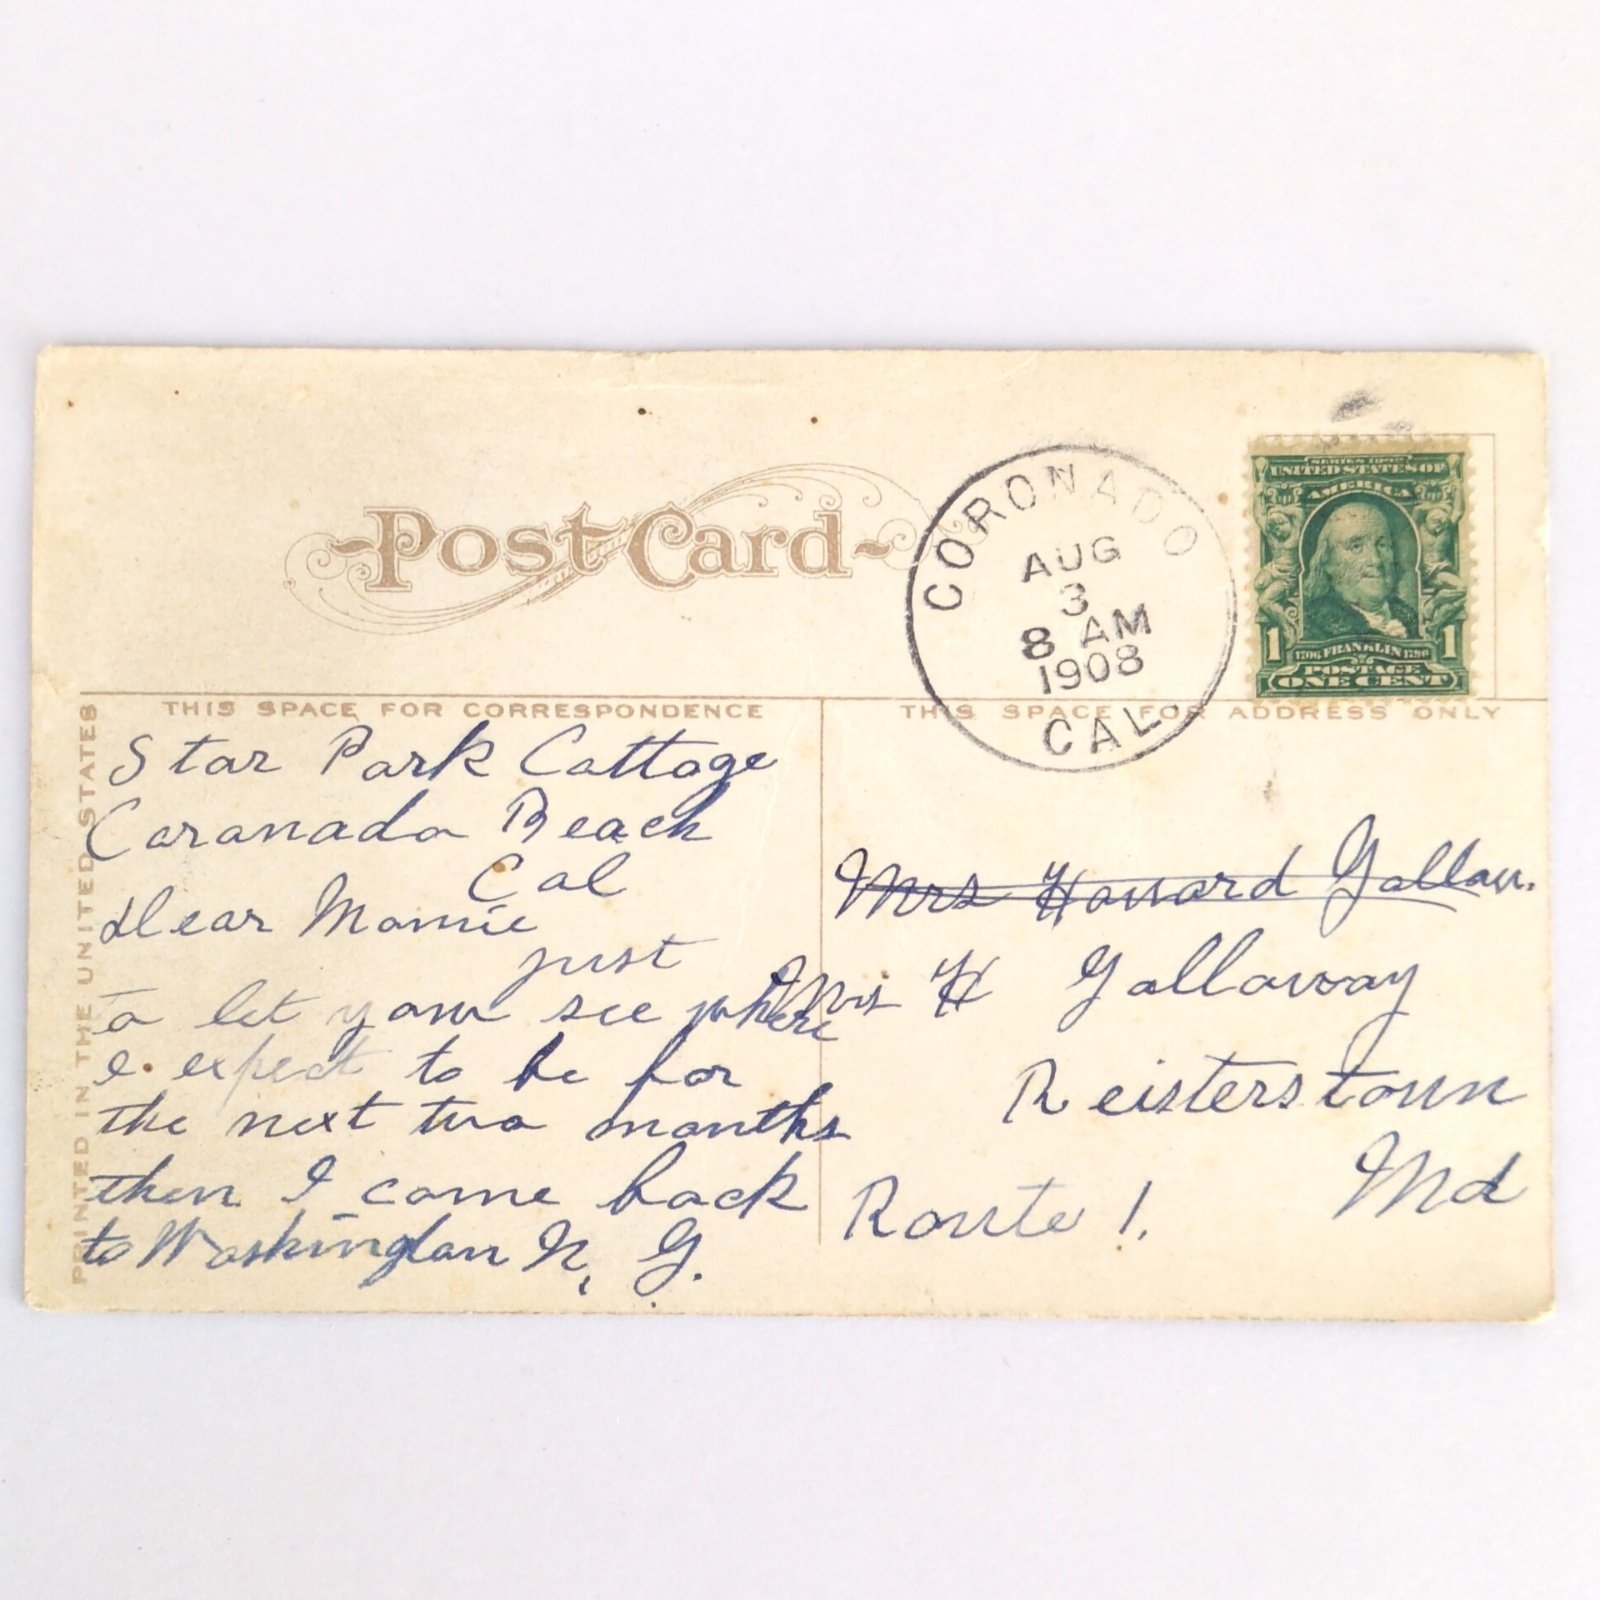 Post Card
CORONADO
AUG
3
8 AM
1908
CAL
SERIES 1902
UNITED STATES OF
AMERICA
1 1
1706 FRANKLIN 1790
POSTAGE
ONE CENT
PRINTED IN THE UNITED STATES
THIS SPACE FOR CORRESPONDENCE
Star Park Cottage
Coronado Beach
Cal
Dear Mamie
just
to let you see where
expect to be for
the next two months
then I come back
to Washington
THIS SPACE FOR ADDRESS ONLY
Mrs Howard
Mrs H Gallaway
Reisterstown
Md
Route 1.